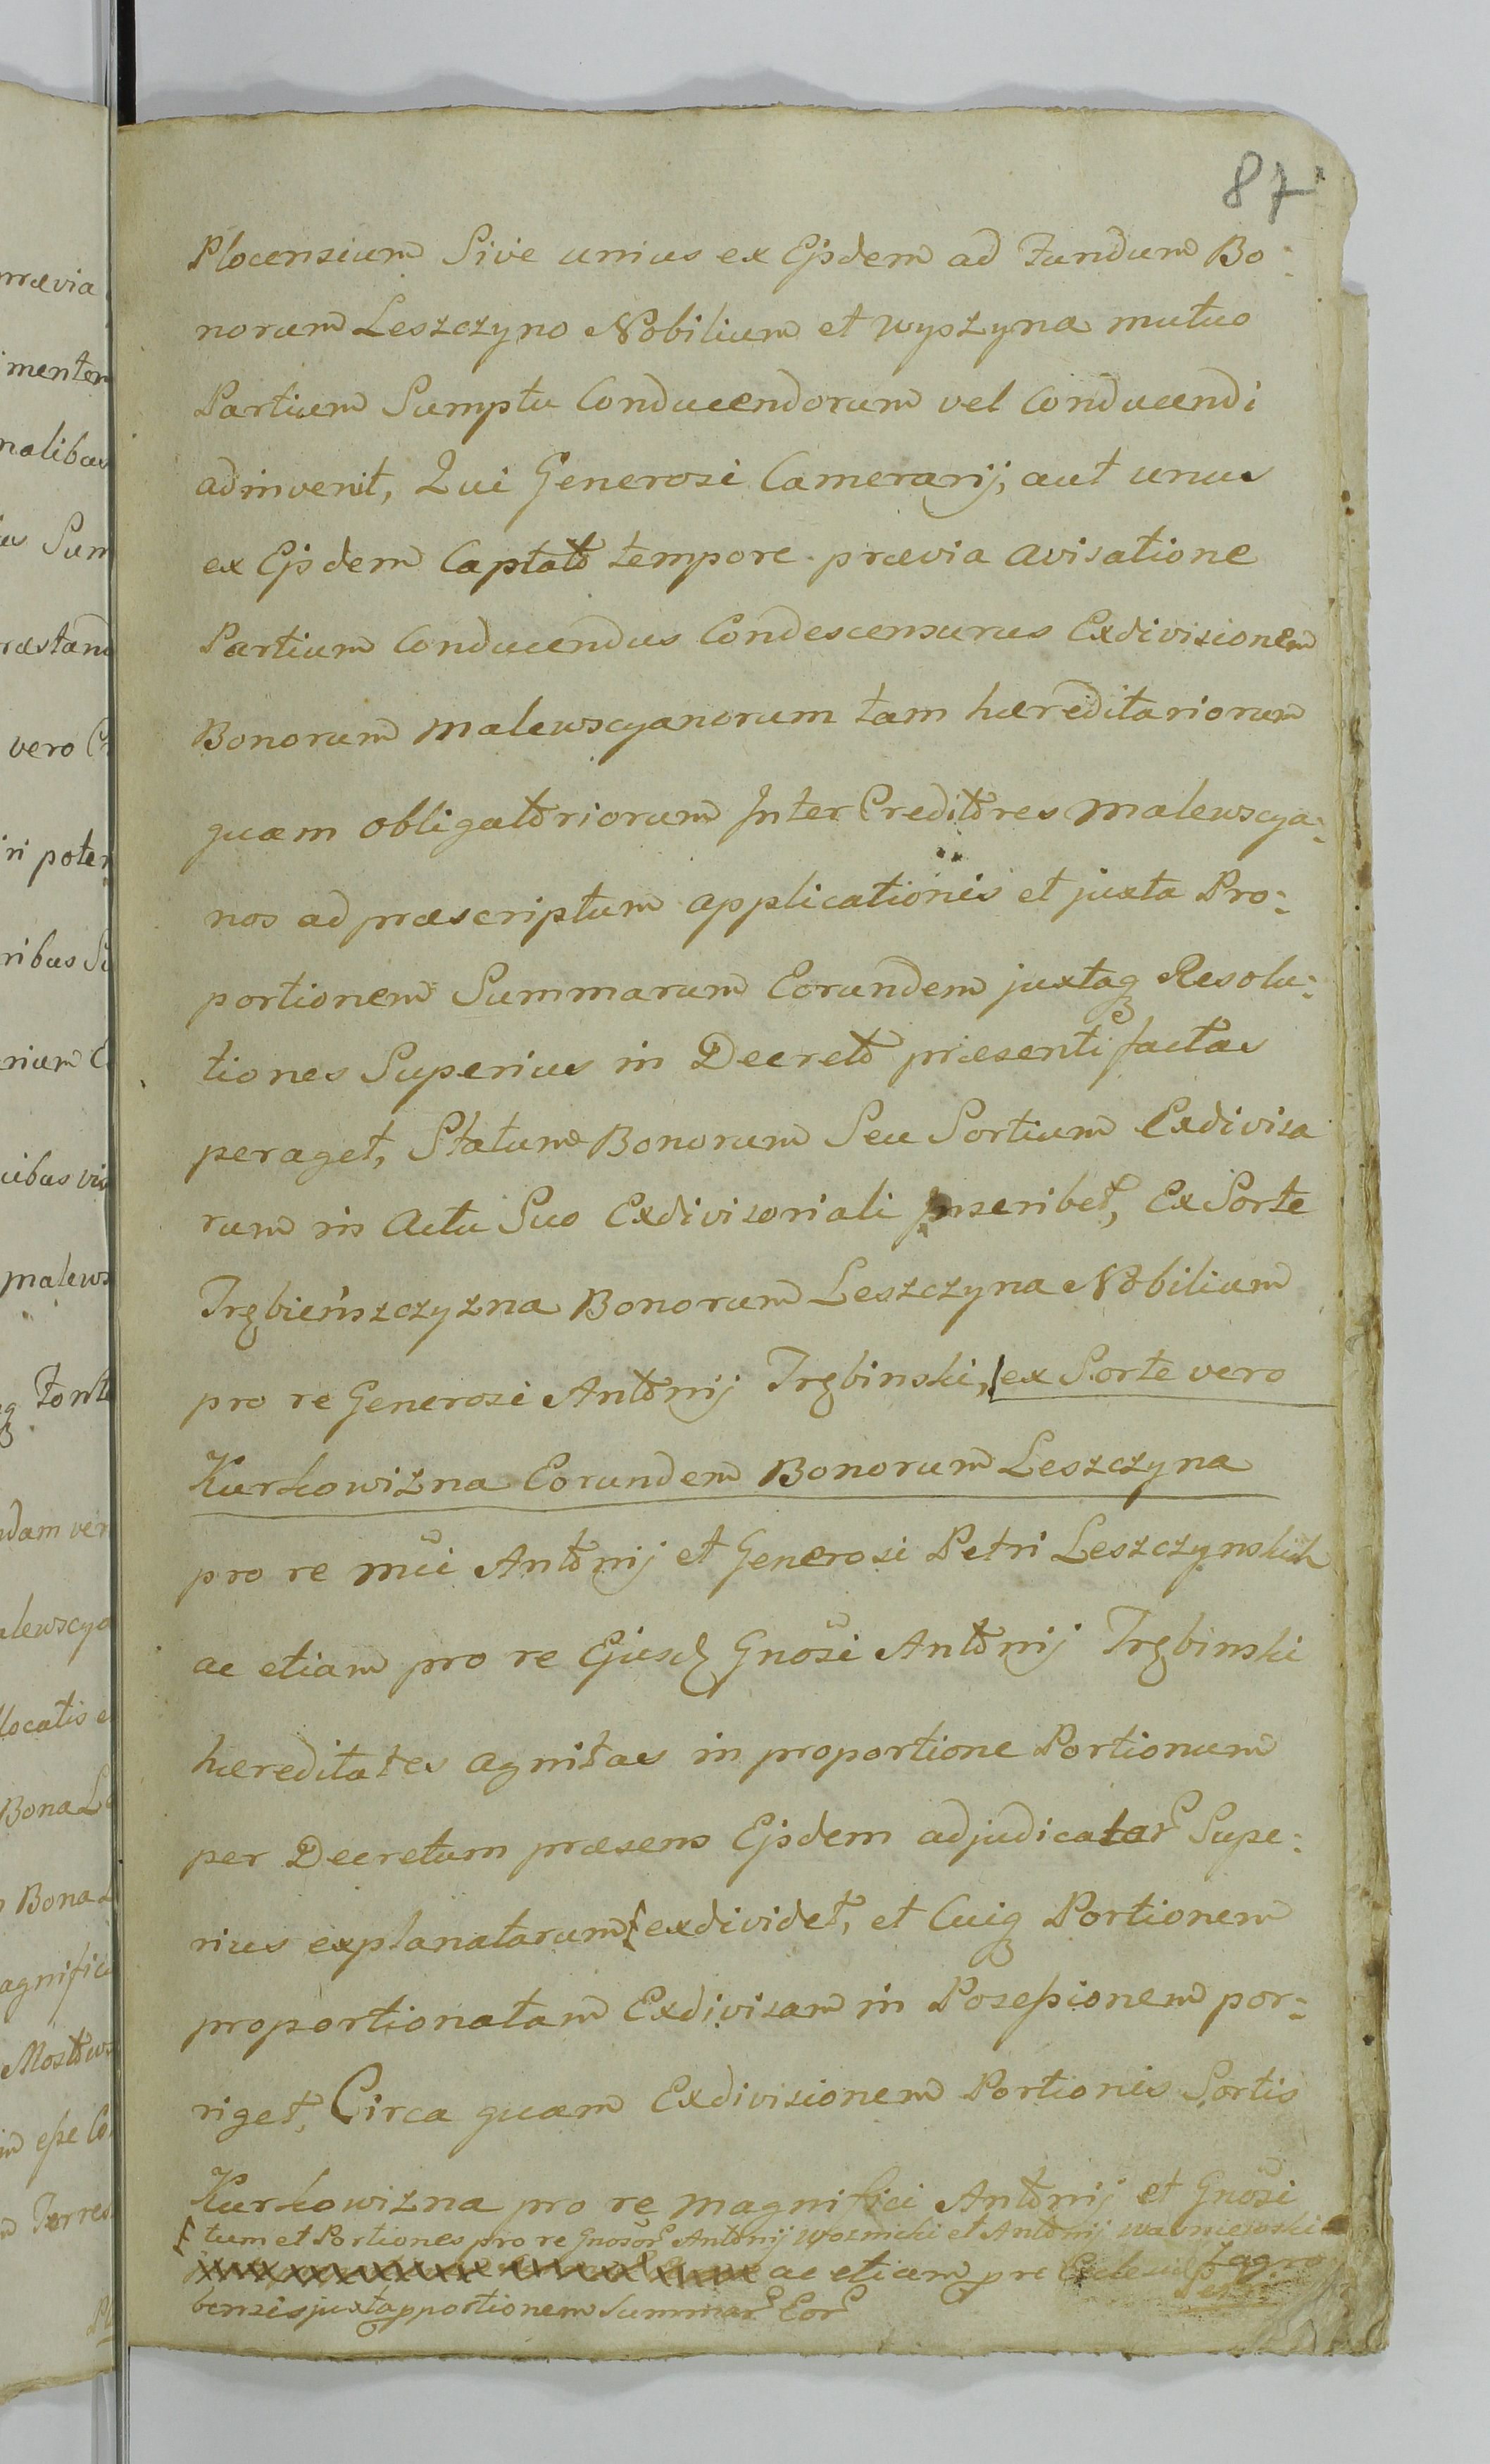 87
Plocensium Sive unius ex Ejsdem ad Fundum Bo:
norum Leszczyno Nobilium et wyszyna mutuo
Partium Sumptu Conducendorum vel Conducendi
adinvenit, Qui Generosi Camerarij, aut unus
ex Ejsdem Captato tempore prævia avisatione
Partium Conducendus Condescensurus Exdivisionem
Bonorum malewscyanorum tam hæreditariorum
quam obligatoriorum Inter Creditores malewscya:
nos ad præscriptum applicationis et juxta Pro:
portionem Summarum Eorundem juxtaq Resolu:
tiones Superius in Decreto præsenti factas
peraget, Statum Bonorum Seu Sortium Exdivisa
rum in Actu Suo Exdivisoriali Inseribet, Ex Sorte
Trębieńszczyzna Bonorum Leszczyna Nobilium
pro re Generosi Antonij Trębinski, ex Sorte vero
Kurkowizna Eorundem Bonorum Leszczyna
pro re mci Antonij et Generosi Petri Leszczynskich
ac etiam pro re Ejusd Gnosi Antonij Trębinski
hæreditates agnitas in proportione Portionum
per Decretum præsens Ejsdem adjudicatar Supe:
rius explanatarum exdividet, et Cuiq Portionem
proportionatam Exdivisam in Posessionem por:
riget, Circa quam Exdivisionem Portionis Sortis
Kurkowizna pro re magnifici Antonij et Gnosi
tum et Portiones pro re Gnosor Antonij Woznicki et Antonij waśniewski
ac etiam pro Petri
bensis juxta pportionem Summar Eor